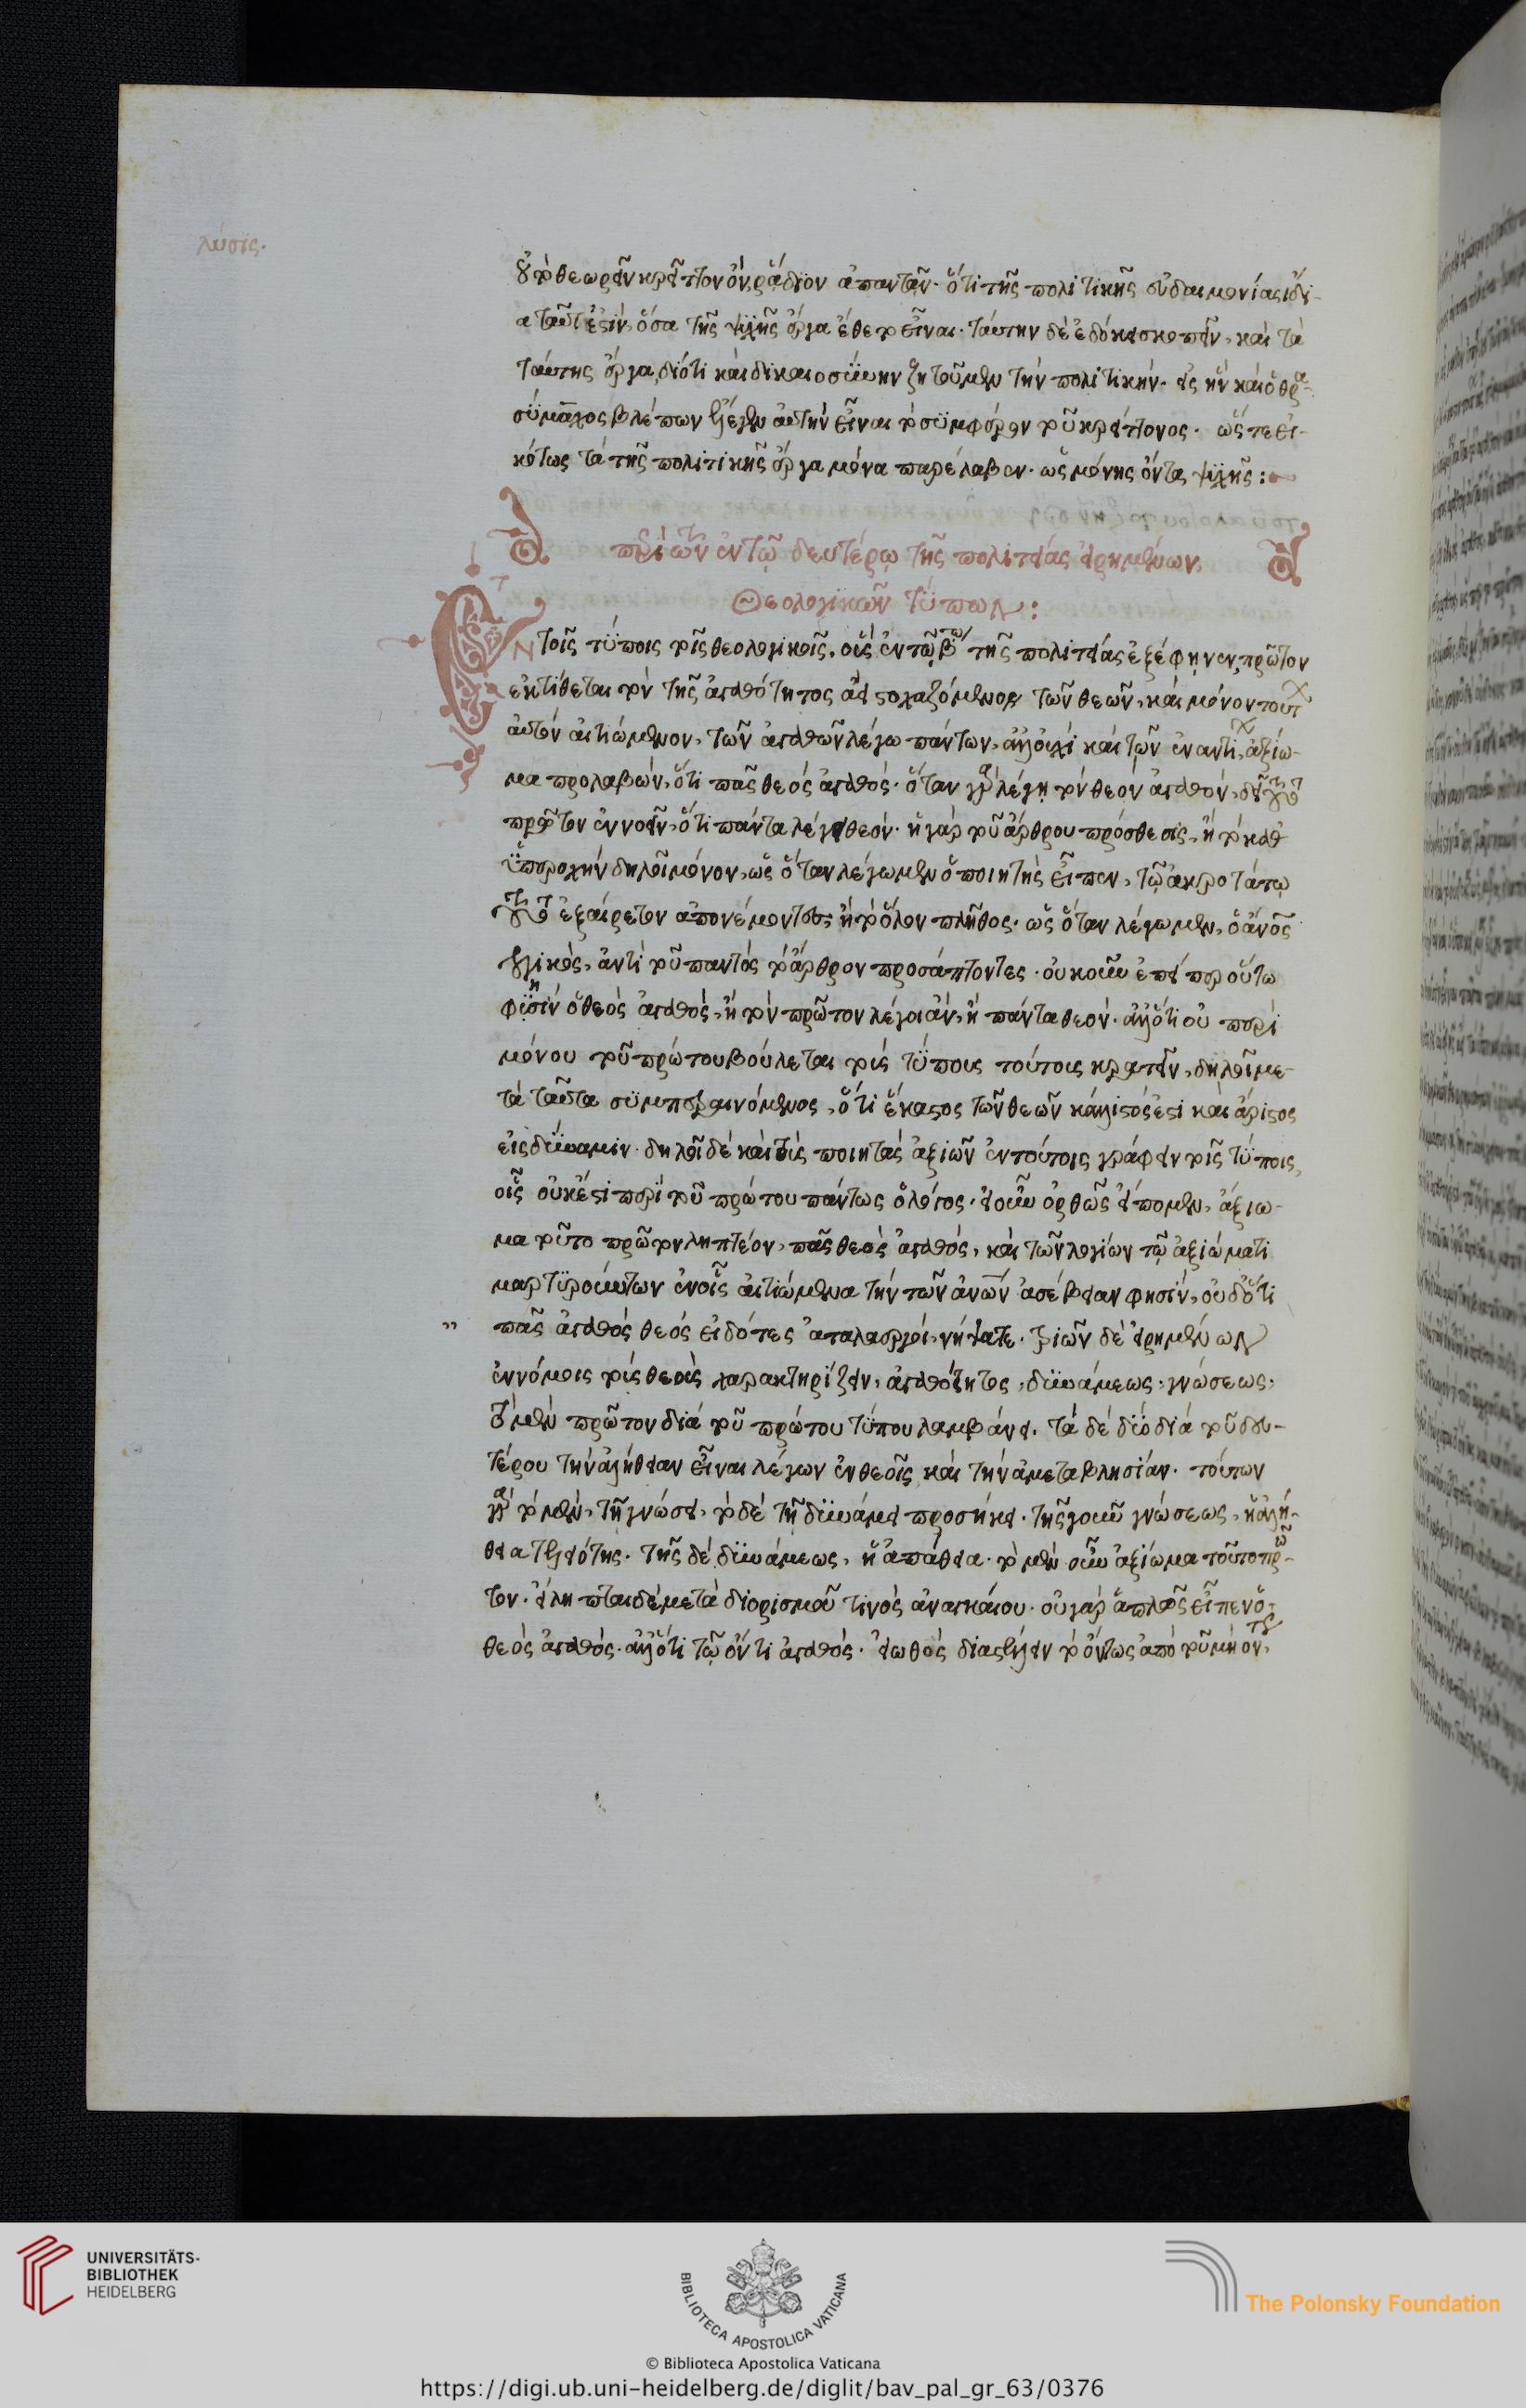 λύσις.
οὐ τὸ θεωρεῖν κρεῖττον ὄν, ῥᾴδιον ἀπαντᾶν· ὅτι τῆς πολιτικῆς εὐδαιμονίας ἴδι-
α ταῦτ' ἐστίν, ὅσα τῆς ψυχῆς ἔργα ἔθετο εἶναι. ταύτην δὲ ἐδόκει σκοπεῖν, καὶ τὰ
ταύτης ἔργα, διότι καὶ δικαιοσύνην ζητοῦμεν τὴν πολιτικήν. εἰς ἣν καὶ ὁ θρα-
σύμαχος βλέπων ἔλεγεν αὐτὴν εἶναι τὸ συμφέρον τοῦ κρείττονος. ὥστε εἰ-
κότως τὰ τῆς πολιτικῆς ἔργα μόνα παρέλαβεν. ὡς μόνης ὄντα ψυχῆς:
περὶ τῶν ἐν τῷ δευτέρῳ τῆς πολιτείας εἰρημένων
θεολογικῶν τύπων:
ἐν τοῖς τύποις τοῖς θεολογικοῖς, οὓς ἐν τῷ βῳ τῆς πολιτείας ἐξέφηνεν, πρῶτον
ἐκτίθεται τὸν τῆς ἀγαθότητος ἀεὶ στοχαζόμενον τῶν θεῶν, καὶ μόνον τούτων
αὐτὸν αἰτιώμενον, τῶν ἀγαθῶν λέγω πάντων, ἀλλ' οὐχὶ καὶ τῶν ἐναντίων, ἀξίω-
μα προλαβών, ὅτι πᾶς θεὸς ἀγαθός. ὅταν γὰρ λέγῃ τὸν θεὸν ἀγαθόν, δεῖ τοῦτο
πρῶτον ἐννοεῖν, ὅτι πάντα λέγει θεόν. ἡ γὰρ τοῦ ἄρθρου πρόσθεσις, ἢ τὸ καθ'
ὑπεροχὴν δηλοῖ μόνον, ὡς ὅταν λέγωμεν ὁ ποιητὴς εἶπεν, τῷ ἀκροτάτῳ
τοῦτο ἐξαίρετον ἀπονέμοντες· ἢ τὸ ὅλον πλῆθος. ὡς ὅταν λέγωμεν, ὁ ἄνος
λογικός, ἀντὶ τοῦ παντὸς τὸ ἄρθρον προσάπτοντες. οὐκοῦν ἐπεὶ περ οὕτω
φησὶν ὁ θεὸς ἀγαθός, ἢ τὸν πρῶτον λέγοι ἄν, ἢ πάντα θεόν. ἀλλ' ὅτι οὐ περὶ
μόνου τοῦ πρώτου βούλεται τοὺς τύπους τούτους κρατεῖν, δηλοῖ με-
τὰ ταῦτα συμπεραινόμενος, ὅτι ἕκαστος τῶν θεῶν κάλλιστός ἐστι καὶ ἄριστος
εἰς δύναμιν. δηλοῖ δὲ καὶ τοὺς ποιητὰς ἀξιῶν ἐν τούτοις γράφειν τοῖς τύποις,
οἷς οὐκέτι περὶ τοῦ πρώτου πάντως ὁ λόγος. εἰ οὖν ὀρθῶς εἴπομεν, ἀξίω-
μα τοῦτο πρῶτον ληπτέον, πᾶς θεὸς ἀγαθός, καὶ τῶν λογίων τῷ ἀξιώματι
μαρτυρούντων ἐν οἷς αἰτιώμενα τὴν τῶν ἀνων ἀσέβειαν φησίν, οὐδ' ὅτι
» πᾶς ἀγαθὸς θεὸς εἰδότες ἆ ταλαεργοί, νήψατε. τριῶν δὲ εἰρημένων
ἐν νόμοις τοὺς θεοὺς χαρακτηρίζειν, ἀγαθότητος, δυνάμεως, γνώσεως,
τὸ μὲν πρῶτον διὰ τοῦ πρώτου τύπου λαμβάνει. τὰ δὲ δύο διὰ τοῦ δευ-
τέρου τὴν ἀλήθειαν εἶναι λέγων ἐν θεοῖς καὶ τὴν ἀμεταβλησίαν. τούτων
γὰρ τὸ μὲν, τῇ γνώσει, τὸ δὲ τῇ δυνάμει προσήκει. τῆς γοῦν γνώσεως, ἡ ἀλή-
θεια τελειότης. τῆς δὲ δυνάμεως, ἡ ἀπάθεια. τὸ μὲν οὖν ἀξίωμα τοῦτο πρῶ-
τον. εἴληπται δὲ μετὰ διορισμοῦ τινὸς ἀναγκαίου. οὐ γὰρ ἁπλῶς εἶπεν ὁ
θεὸς ἀγαθός. ἀλλ' ὅτι τῷ ὄντι ἀγαθός. εἰωθὼς διαστέλλειν τὸ ὄντως ἀπὸ τοῦ μὴ ὄντως,
UNIVERSITÄTS-
BIBLIOTHEK
HEIDELBERG
BIBLIOTECA APOSTOLICA VATICANA
The Polonsky Foundation
© Biblioteca Apostolica Vaticana
https://digi.ub.uni-heidelberg.de/diglit/bav_pal_gr_63/0376